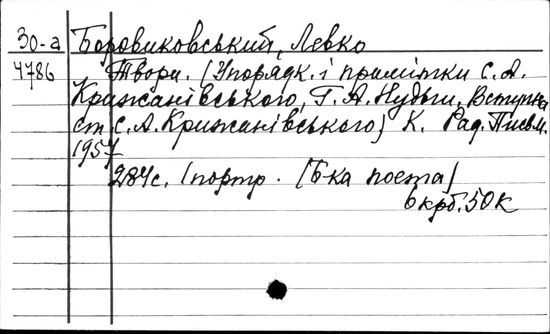 30-а Боровиковський, Левко
4786 Твори. (Упорядк. і примітки С. А.
Крижанівського, Г. А. Нудьги, Вступна
ст. С. А. Крижанівського) К. Рад. Письм.
1957
284с. 1 портр. (Б-ка поета)
6 крб. 50 к